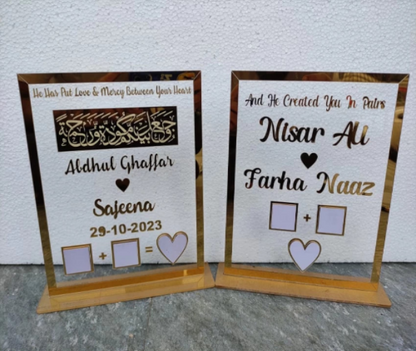 He Has Put Love & Mercy Between Your Heart
وجعل بينكم مودة ورحمة
Abdhul Ghaffar
Safeena
29-10-2023
+ =
And He Created You In Pairs
Nisar Ali
Farha Naaz
+